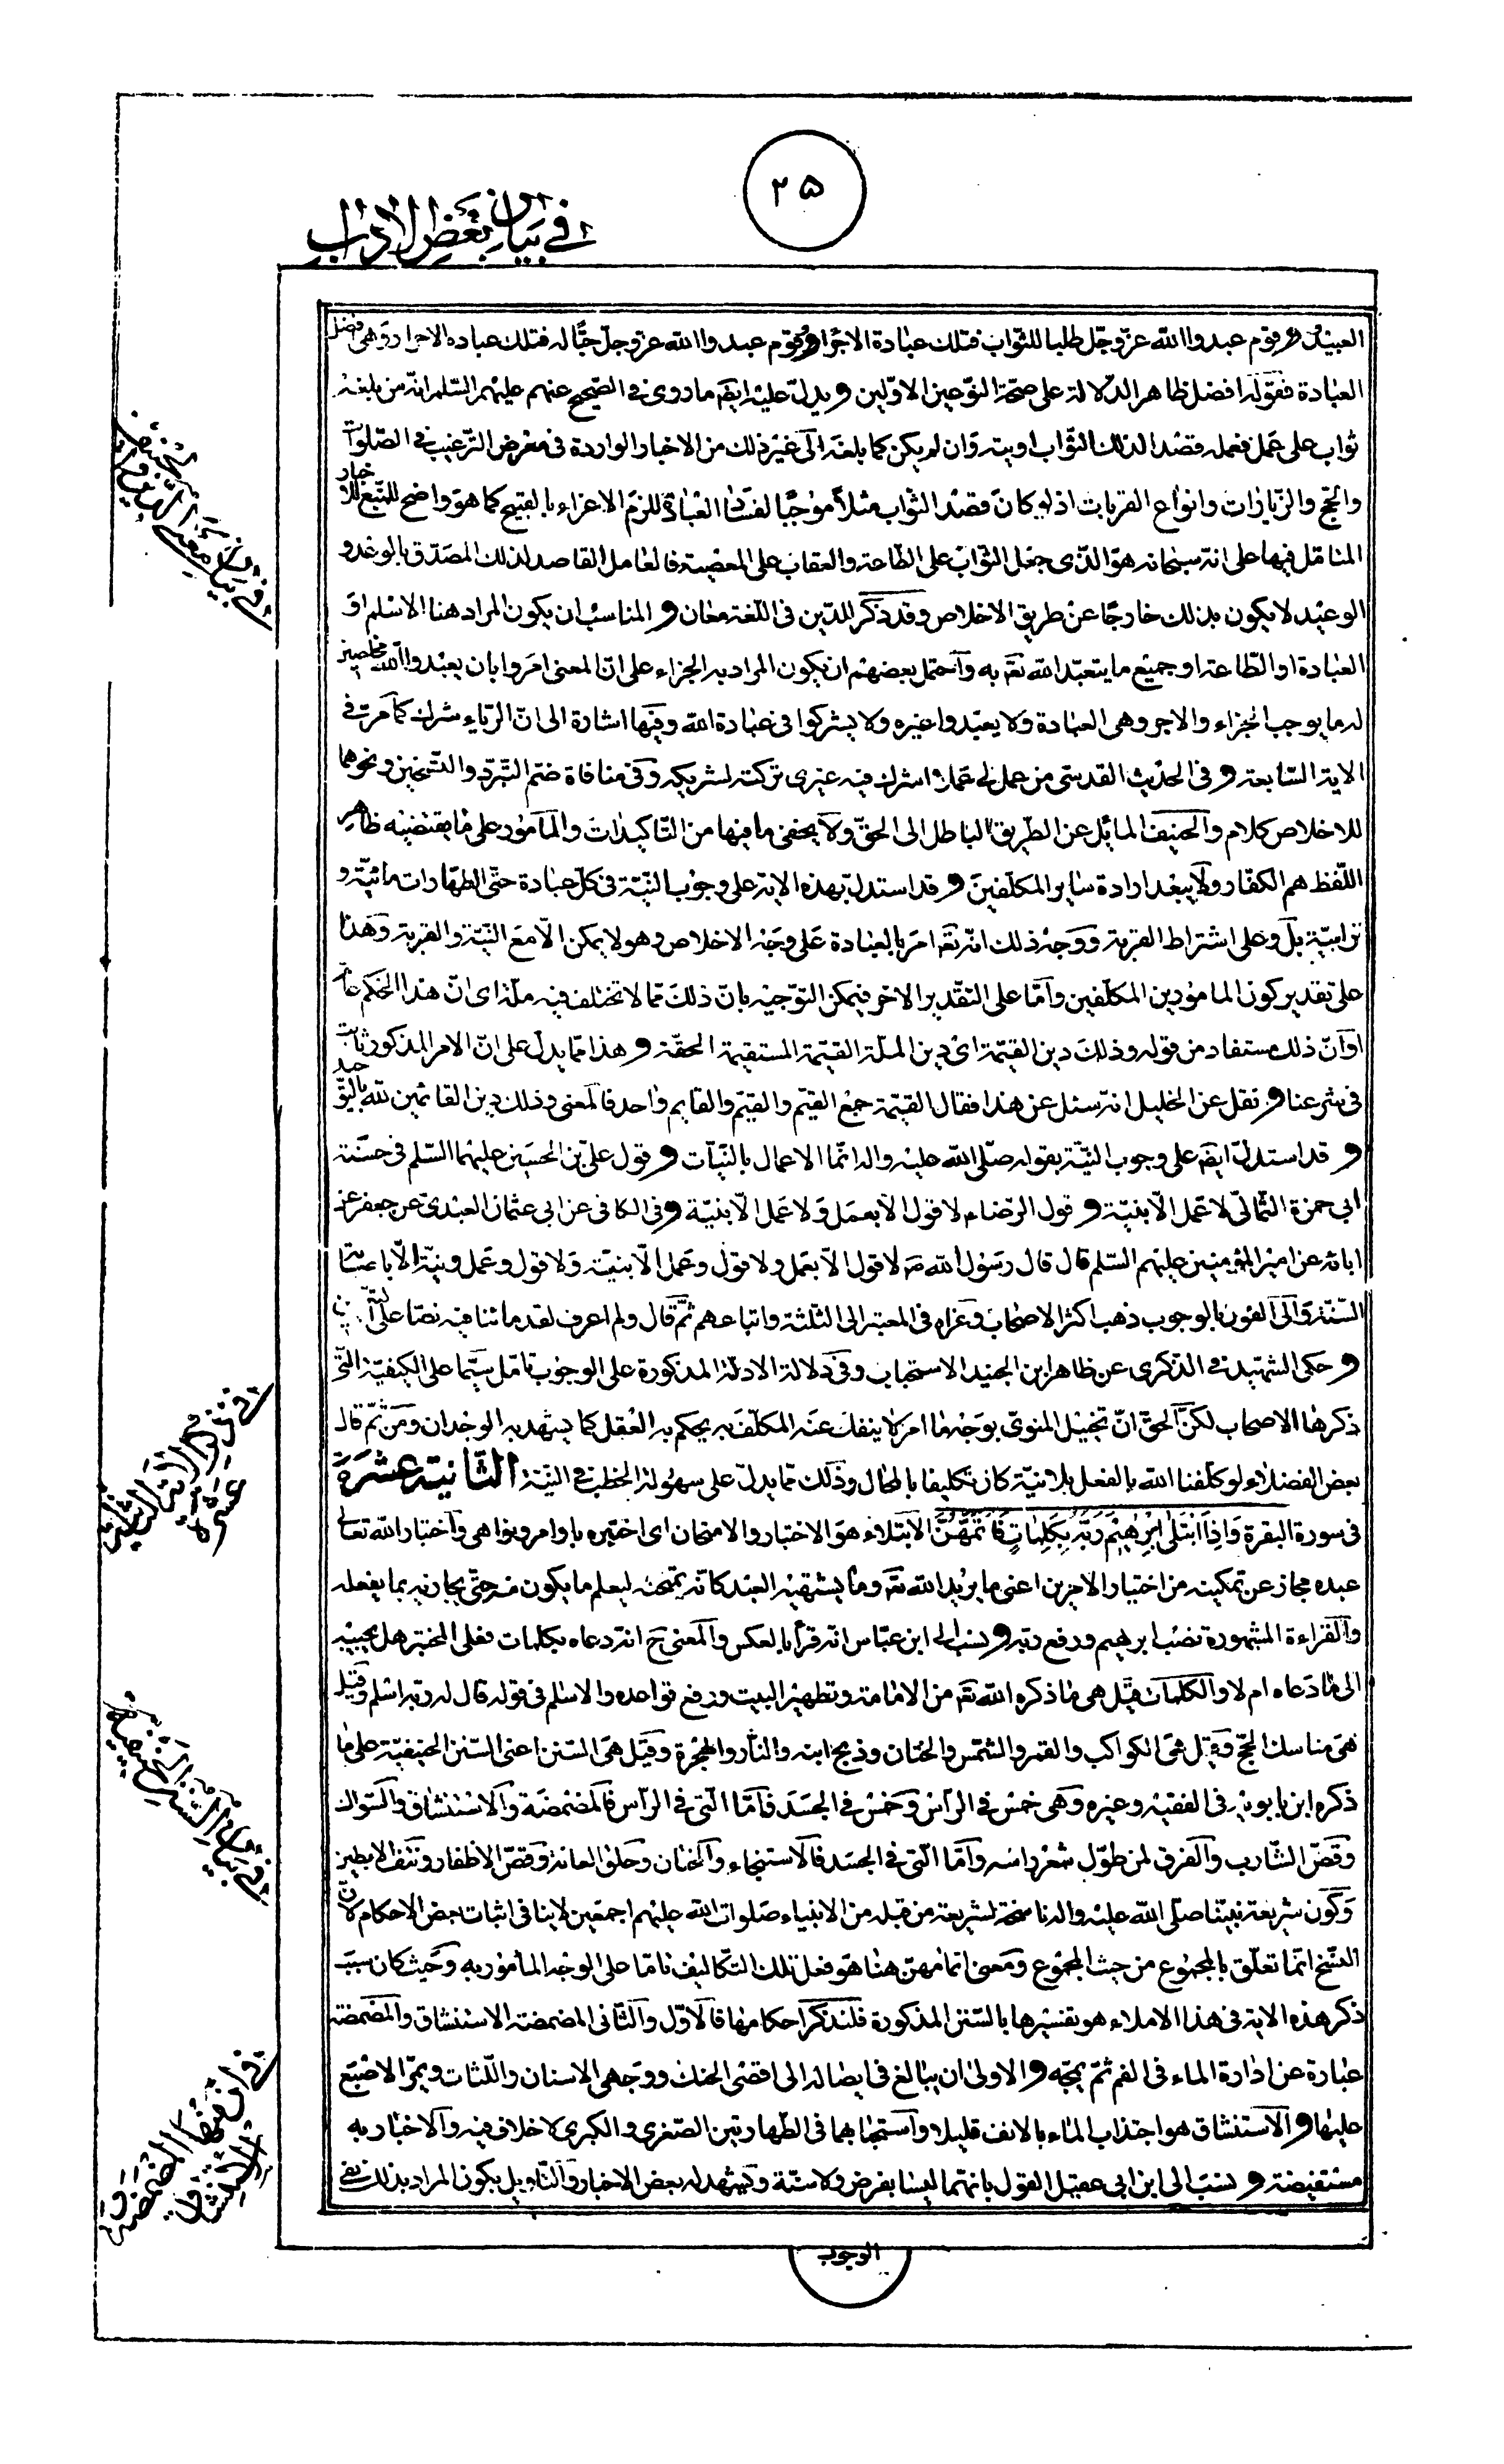 ۲۵
في بيان بعض الاداب
العبيد و قوم عبدوا الله عزّ وجلّ طلبا للثواب فتلك عبادة الاجراء و قوم عبدوا الله عزّ وجلّ حبّا له فتلك عبادة الاحرار وهى افضل
العبادة فقوله افضل ظاهر الدلالة على صحّة النوّعين الاوّلين و يدلّ عليه ايضَ ما روى في الصّحيح عنهم عليهم السّلم انّه من بلغه
ثواب على عمل فعمله قصدا لذلك الثواب اوتيه وان لم يكن كما بلغه الى غير ذلك من الاخبار الواردة في معرض الترغيب في الصّلوات
والحجّ والزّيارات وانواع القربات اذ لو كان قصد الثّواب مثلا موجبًا لفساد العبادة للزم الاغراء بالقبيح كما هو واضح للمتتبّع للاخبار
المتامّل فيها على انّه سبحانه هو الّذى جعل الثّواب على الطّاعة والعقاب على المعصية فالعامل القاصد لذلك المصدّق بالوعد و
الوعيد لا يكون بذلك خارجًا عن طريق الاخلاص وقد ذكر للدّين في اللّغة معان و المناسب ان يكون المراد هنا الاسلم او
العبادة او الطّاعة او جميع ما يتعبّد الله تعَ به واحتمل بعضهم ان يكون المراد به الجزاء على انّ المعنى امروا بان يعبدوا الله مخلصين
له ما يوجب الجزاء والاجر وهى العبادة ولا يعبدوا غيره ولا يشركوا في عبادة الله وفيها اشارة الى انّ الرّياء شرك كما مرت في
الاية السّابعة و في الحديث القدسى من عمل لي عملا اشرك فيه غيرى تركته لشريكه وفي منافاة ضمّ التبرّد والتسخين ونحوهما
للاخلاص كلام والحنيف المائل عن الطريق الباطل الى الحقّ ولا يخفى ما فيها من التّاكيدات والمأمور على ما يقتضيه ظاهر
اللّفظ هم الكفّار ولا يبعد ارادة ساير المكلّفين و قد استدلّ بهذه الاية على وجوب النّيّة في كلّ عبادة حتّى الطهارات مائيّة و
ترابيّة بل وعلى اشتراط القربة ووجه ذلك انّه تعَ امر بالعبادة على وجه الاخلاص وهو لا يمكن الّا مع النيّة والقربة وهذا
على تقدير كون المامورين المكلّفين وامّا على التقدير الاخر فيمكن التوّجيه بانّ ذلك ممّا لا تختلف فيه ملّة اى انّ هذا الحكم عامّ
اوانّ ذلك مستفاد من قوله وذلك دين القيّمة اى دين الملّة القيّمة المستقيمة الحقّة و هذا ممّا يدلّ على انّ الامر المذكور ثابت
في شرعنا و نقل عن الخليل انّه سئل عن هذا فقال القيّمة جمع القيّم والقيّم والقايم واحد فالمعنى وذلك دين القائمين لله بالتّوحيد
و قد استدلّ ايضَ على وجوب النيّة بقوله صلّى الله عليه واله انّما الاعمال بالنّيّات و قول علىّ بن الحسين عليهما السّلم في حسنة
ابي حمزة الثمالىّ لا عمل الّا بنيّة و قول الرّضاء لا قول الّا بعمل ولا عمل الّا بنيّة و في الكافى عن ابي عثمان العبدى عن جعفر عن
ابائه عن امير المؤمنين عليهم السّلم قال قال رسول الله صَ لا قول الّا بعمل ولا قول وعمل الّا بنيّة ولا قول وعمل ونيّة الّا باصابة
السّنّة والى القول بالوجوب ذهب اكثر الاصحاب وعزاه في المعتبر الى الثّلثة واتباعهم ثمّ قال ولم اعرف لقدمائنا فيه نصّا على
و حكى الشهيد في الذكرى عن ظاهر ابن الجنيد الاستحباب وفي دلالة الادلّة المذكورة على الوجوب تامّل سيّما على الكيفيّة الّتى
ذكرها الاصحاب لكنّ الحقّ انّ تخييل المنوىّ بوجه ما امر لا ينفك عنه المكلّف به يحكم به العقل كما يشهد به الوجدان ومن ثمّ قال
بعض الفضلاء لو كلّفنا الله بالفعل بلا نيّة كان تكليفا بالمحال وذلك ممّا يدلّ على سهولة الخطب في النيّة الثّانية عشرة
في سورة البقرة وَاِذِ ابْتَلى اِبْرهيمَ رَبُّهُ بِكَلِماتٍ فَاَتَمَّهُنَّ الابتلاء هو الاختبار والامتحان اى اختبره باوامر ونواهي واختبار الله تعالى
عبده مجاز عن تمكينه من اختيار الامرين اعنى ما يريد الله تعَ وما يشتهيه العبد كانّه يمتحنه ليعلم ما يكون منه حتّى يجازيه بما يفعله
والقراءة المشهورة نصب ابرهيم ورفع ربّه و نسب الى ابن عبّاس انّه قرأ بالعكس والمعنى حَ انّه دعاه بكلمات فعلى المختبر هل يجيبه
الى ما دعاه ام لا والكلمات قيل هى ما ذكره الله تعَ من الامامة وتطهير البيت ورفع قواعده والاسلم في قوله قال له ربّه اسلم وقيل
هى مناسك الحجّ وقيل هى الكواكب والقمر والشّمس والختان وذبح ابنه والنّار والهجرة وقيل هى السّنن اعنى السّنن الحنيفيّة على ما
ذكره ابن بابويه في الفقيه وغيره وهى خمس في الرأس وخمس في الجسد فامّا الّتى في الرأس فالمضمضة والاستنشاق والسّواك
وقصّ الشّارب والفرق لمن طوّل شعر راسه وامّا الّتى في الجسد فالاستنجاء والختان وحلق العانة وقصّ الاظفار ونتف الابطين
وكون شريعة نبيّنا صلّى الله عليه واله ناسخة لشريعة من قبله من الانبياء صلوات الله عليهم اجمعين لا ينافى اثبات بعض الاحكام لانّ
النّسخ انّما تعلّق بالمجموع من حيث المجموع ومعنى اتمامهنّ هنا هو فعل تلك التكاليف تامّا على الوجه المأمور به وحيث كان سبب
ذكر هذه الاية في هذا الاملاء هو تفسيرها بالسّنن المذكورة فلنذكر احكامها فالاوّل والثّانى المضمضة الاستنشاق والمضمضة
عبارة عن ادارة الماء في الفم ثمّ يمجّه و الاولى ان يبالغ في ايصاله الى اقصى الحنك ووجهى الاسنان واللّثات ويمرّ الاصبع
عليها و الاستنشاق هو اجتذاب الماء بالانف قليلا واستحبابهما في الطهارتين الصّغرى والكبرى لا خلاف فيه والاخبار به
مستفيضة و نسب الى ابن ابي عقيل القول بانّهما ليسا بفرض ولا سنّة ويشهد له بعض الاخبار والتّاويل بكون المراد بذلك نفى
الوجوب
في بيان معنى الدين
في ذكر الاية الثانية
عشرة
في بيان السنن الحنيفية
في المضمضة و
الاستنشاق